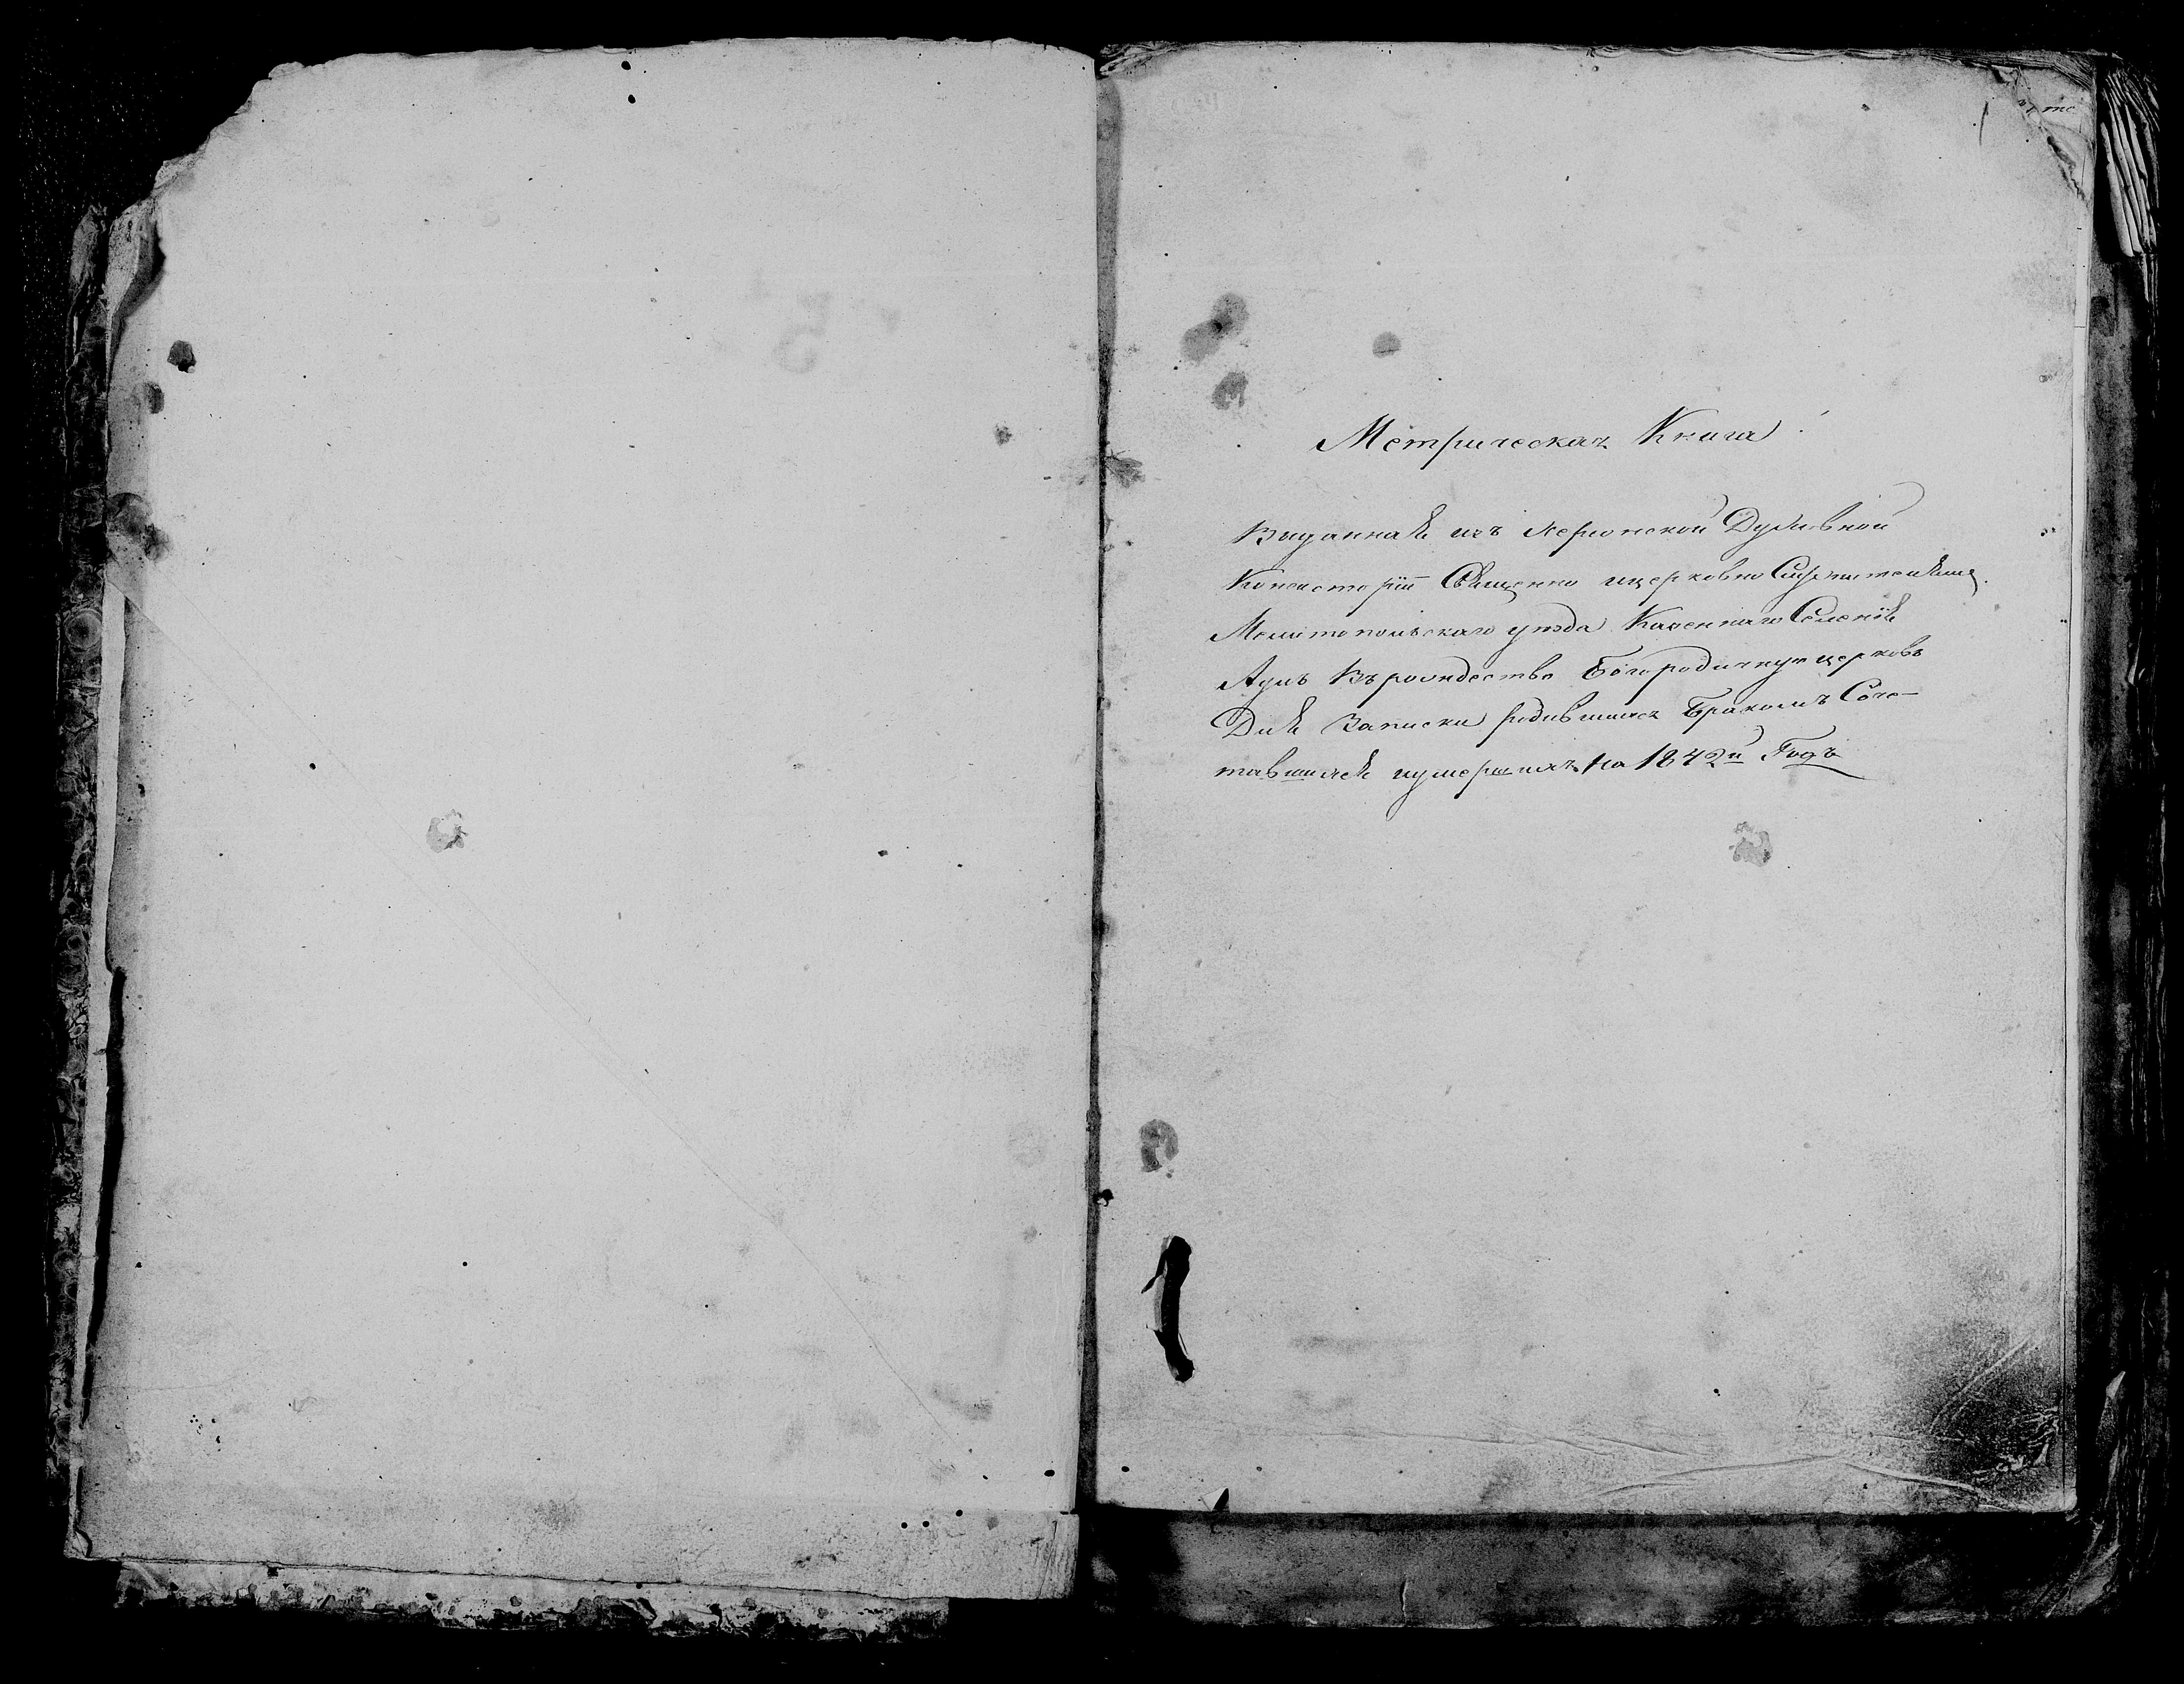 1
Метрическая Книга
Выданная изъ Херсонской Духовной
Консисторіи Священно ицерковно Служителямъ
Мелитопольскаго уезда Казеннаго Селенія
Въ рождество Богородичную церковь
Для Записки родившихся Бракомъ Соче-
тавшихся иумершихъ на 1842й Годъ